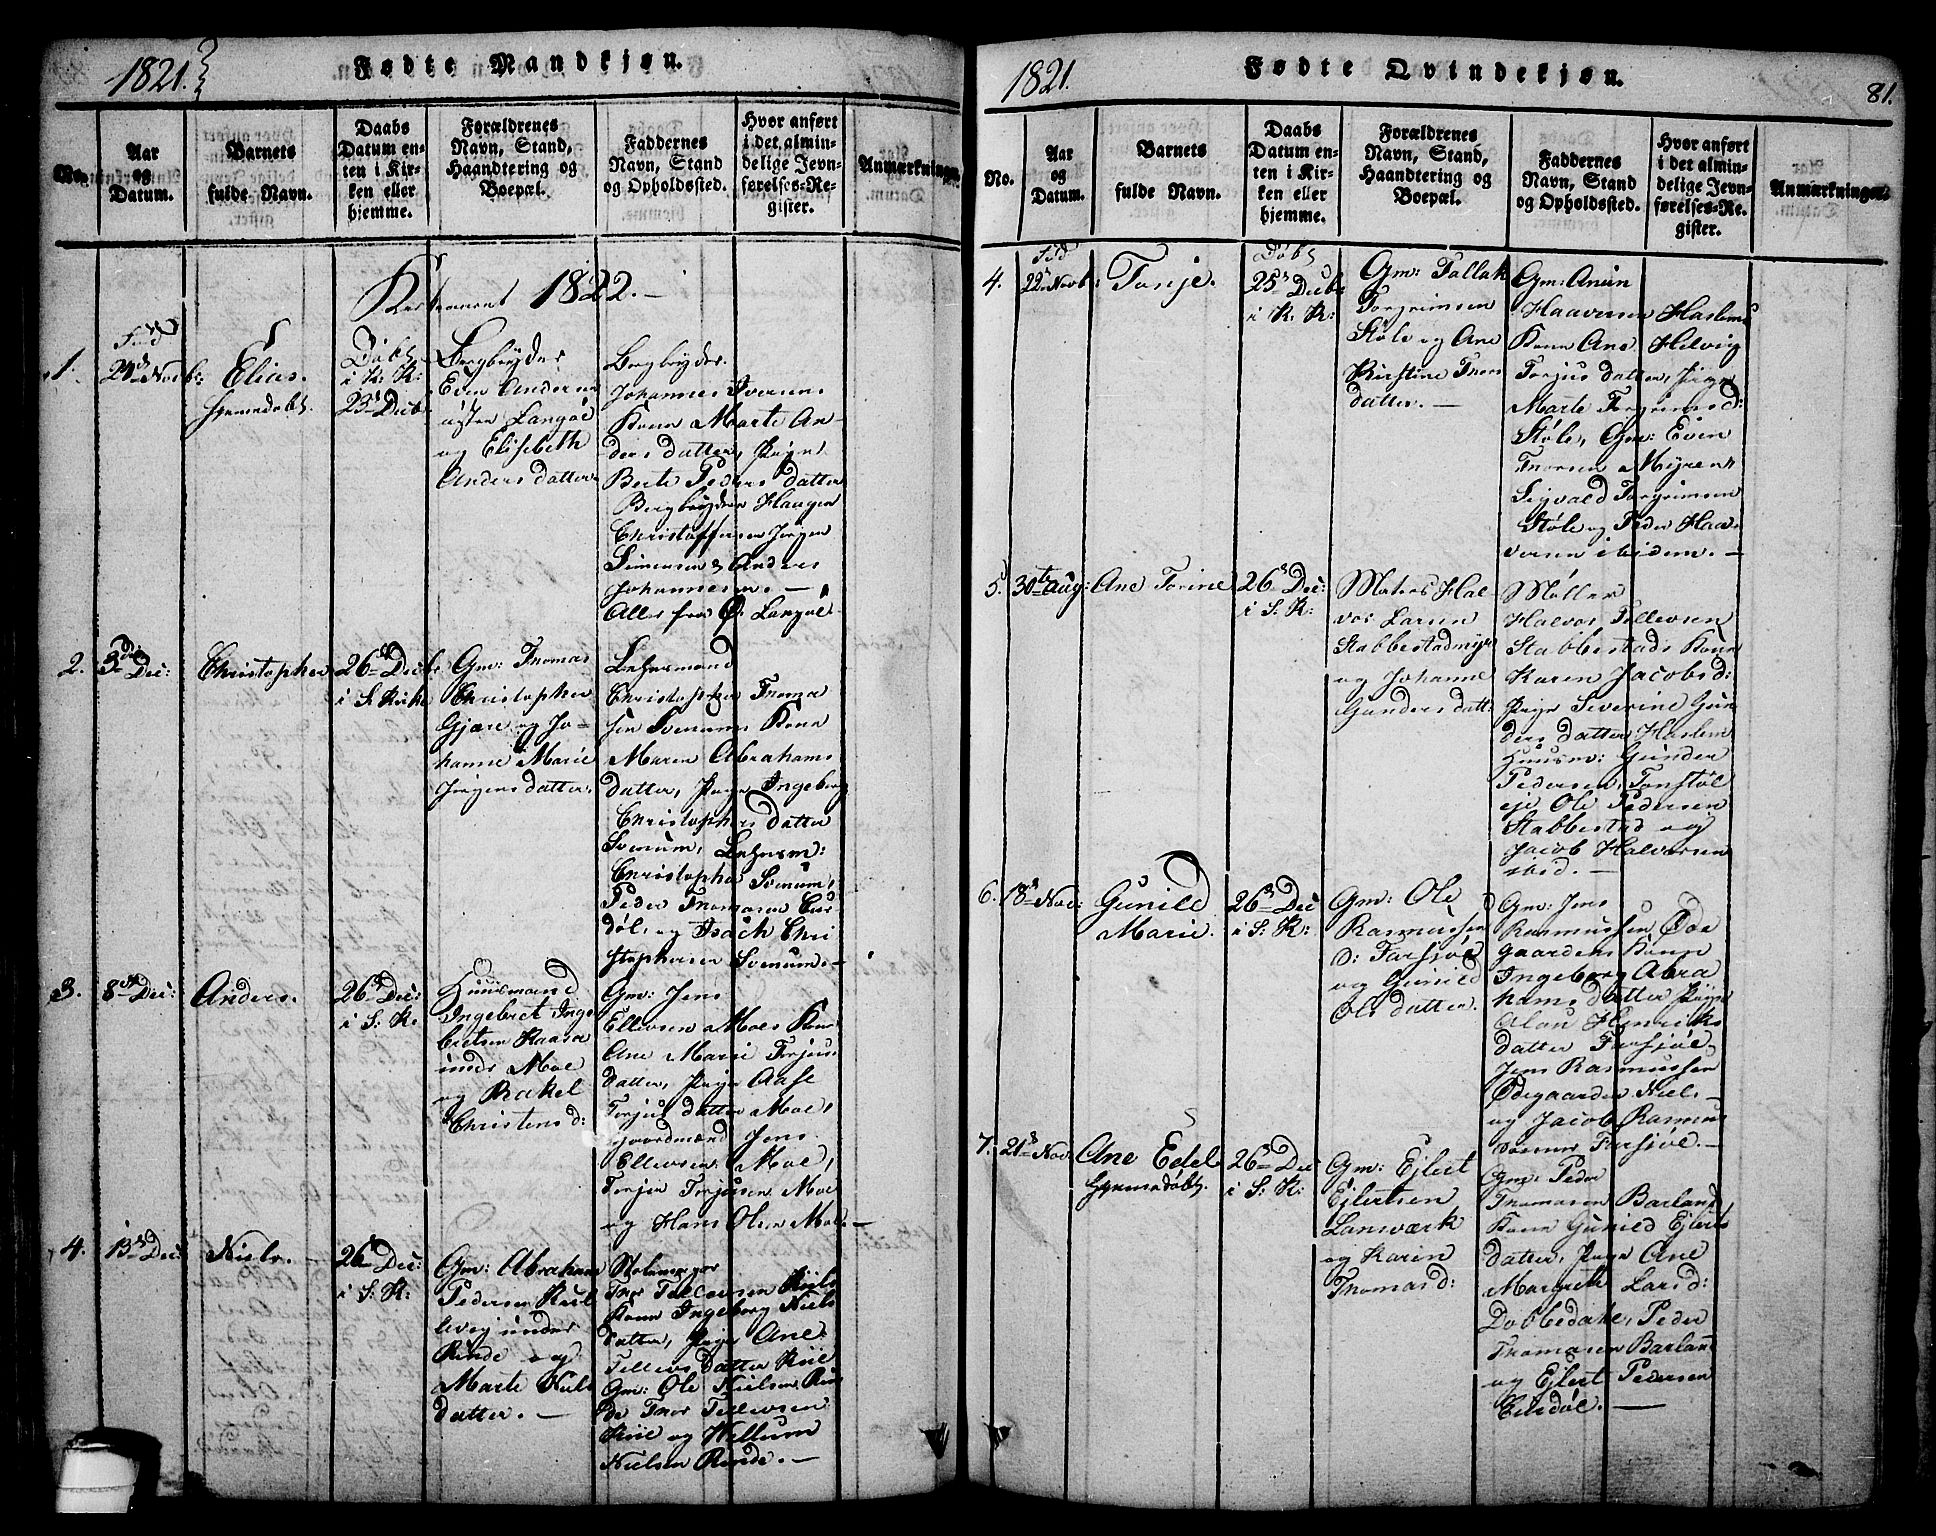 1821.
Fødte Mandkjøn.
No.
Aar
og
Datum.
Barnets
fulde Navn.
Daabs
Datum en-
ten i Kir-
ken eller
hjemme.
Forældrenes
Navn, Stand,
Haandtering og
Boepæl.
Faddernes
Navn, Stand
og Opholdssted.
Hvor anført
i det almin-
delige Jevn-
førelses-Re-
gister.
Anmærkninger.
1822.
1.
Fød
24de Novb:
Elias.
hjemedøbt.
Døbt
i K: K:
23de Decb:
Bergbryder
Even Andersen
østen Langøe
og Elisebeth
Anders datter
Bergbryder
Johannes Iversens
Kone Marte An-
ders datter, Pigen
Berte Peders datter
Bergbryder Haagen
Christoffersen Jørgen
Simensen & Anders
Johannesen. —
Alle fra Ø: Langøe
2.
3die Dec:
Christopher
26de Decb:
i S: Kirke
Gm: Thomas
Christopher
Gjære og Jo-
hanne Marie
Jørgens datter.
Lehnsmand
Christopher Thoma
sen Svenums Kone
Maren Abrahams
datter, Pigen Ingeborg
Christophers datter
Svenum, Lehnsm:
Christopher Svenum,
Peder Thomasen Eis-
døl, og Isach Chri
stophersen Svenum. —
3.
8de Dec:
Anders.
26de Dec:
i S: K:
Huusmand
Ingebret Inge
bretsen Haasa
under Moe
og Rakel
Christensd:
Gm: Jens
Ellevsen Moes Kone
Ane Marie Torjus
datter, Pigen Aase
Torjus datter Moe,
Gaardmænd Jens
Ellevsen Moe,
Torjer Torjusen Moe
og Hans Olsen Moe —
4.
13de Dec:
Niels. —
26de Dec:
i S: K:
Gm: Abraham
Pedersen Kiil
levej under
Rinde og
Marte Niels
datter. —
Thor Tellevsen Kiils
Kone Ingeborg Niels
datter, Pigen Ane
Tellevs datter Kiil
Gm: Ole Nielsen Rin
de Thor Tellevsen
Kiil og Willum
Nielsen Rinde. —
1821.
Fødte Qvindekjøn.
81.
No.
Aar
og
Datum.
Barnets
fulde Navn.
Daabs
Datum en-
ten i Kir-
ken eller
hjemme.
Forældrenes
Navn, Stand,
Haandtering og
Boepæl.
Faddernes
Navn, Stand
og Opholdssted.
Hvor anført
i det almin-
delige Jevn-
førelses-Re-
gister.
Anmærkninger.
4.
Fød
22de Novb:
Tonje.
Døbt
25de Decb:
i K: K:
Gm: Tallak
Torgrimsen
Støle og Ane
Kirstine Thors
datter. —
Gm: Anun
Haaversen Haslems
Kone Ane Helvig
Torjus datter, Pigen
Marte Torgrimsd:
Støle, Gm: Even
Thorsen Myren
Sigvald Torgrimsen
Støle og Peder Haa-
versen ibidem. —
5.
30te Aug:
Ane Torine
26de Dec:
i S: K:
Matros Hal
vor Larsen
Stabbestadmyr
og Johanne
Gunders datt:
Møller
Halvor Tellevsen
Stabbestads Kone
Karen Jacobsd:
Pigen Severine Gun
ders datter Haslem
Huusm: Gunder
Pedersen, Tonstøl
eje Ole Pedersen
Stabbestad og
Jacob Halvorsen
ibid. —
6.
18de Nov:
Gunild
Marie.
26de Dec
i S: K:
Gm: Ole
Rasmussen
D: Farsjøe
og Gunild
Ols datter.
Gm: Jens
Rasmussen Øde
gaardens Kone
Ingeborg Abra
hams datter, Pigen
Olau Henriks
datter Farsjøe,
Jens Rasmussen
Ødegaarden Niels —
og Jacob Rasmus
sønner Farsjøe. —
7.
21de Nov:
Ane Edel
hjemedøbt.
26de Dec
i S: K:
Gm: Ejlert
Ejlertsen
Lanværk
og Karin
Thomasd:
Gm: Peder
Thomasen Barland
Kone Gunild Ejlerts
datter, Pigen Ane
Margrete Larsd:
Dobbedake, Peder
Thomasen Barland
og Ejlert Pedersen
Eisdøl. —